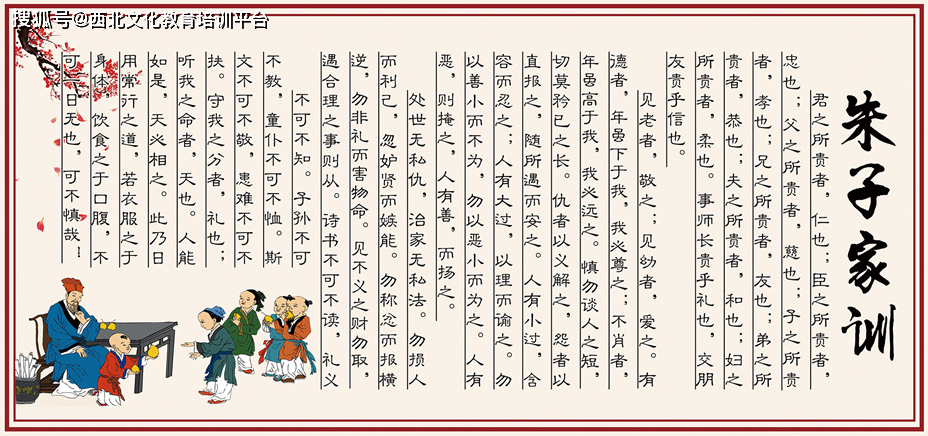 搜狐号@西北文化教育培训平台
朱子家训
君之所贵者，仁也；臣之所贵者，
忠也；父之所贵者，慈也；子之所贵
者，孝也；兄之所贵者，友也；弟之所
贵者，恭也；夫之所贵者，和也；妇之
所贵者，柔也。事师长贵乎礼也，交朋
友贵乎信也。
见老者，敬之；见幼者，爱之。有
德者，年虽下于我，我必尊之；不肖者，
年虽高于我，我必远之。慎勿谈人之短，
切莫矜己之长。仇者以义解之，怨者以
直报之，随所遇而安之。人有小过，含
容而忍之；人有大过，以理而谕之。勿
以善小而不为，勿以恶小而为之。人有
恶，则掩之，人有善，而扬之。
处世无私仇，治家无私法。勿损人
而利己，忽妒贤而嫉能。勿称忿而报横
逆，勿非礼而害物命。见不义之财勿取，
遇合理之事则从。诗书不可不读，礼义
不可不知。子孙不可
不教，童仆不可不恤。斯
文不可不敬，患难不可不
扶。守我之分者，礼也；
听我之命者，天也。人能
如是，天必相之。此乃日
用常行之道，若衣服之于
身体，饮食之于口腹，不
可一日无也，可不慎哉！